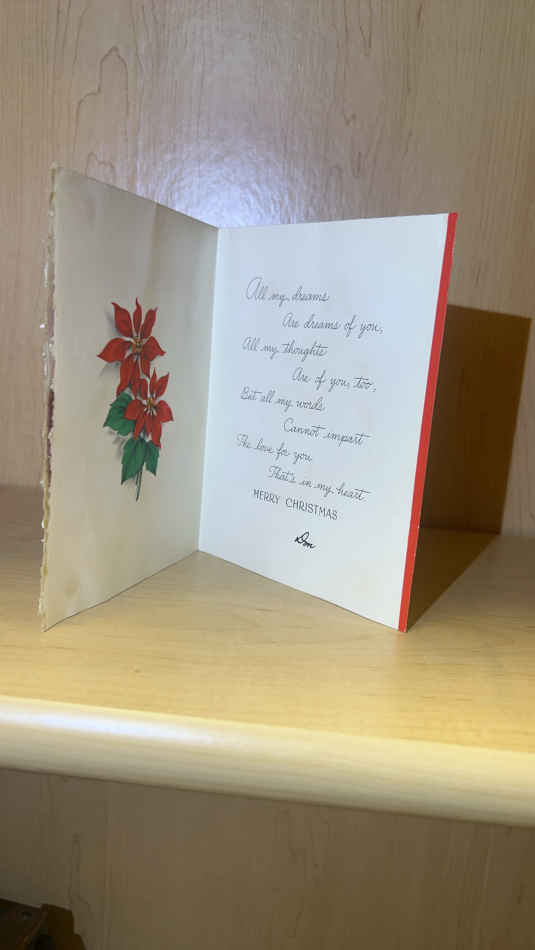 All my dreams
Are dreams of you,
All my thoughts
Are of you, too,
But all my words
Cannot impart
The love for you
That's in my heart.
MERRY CHRISTMAS
Don